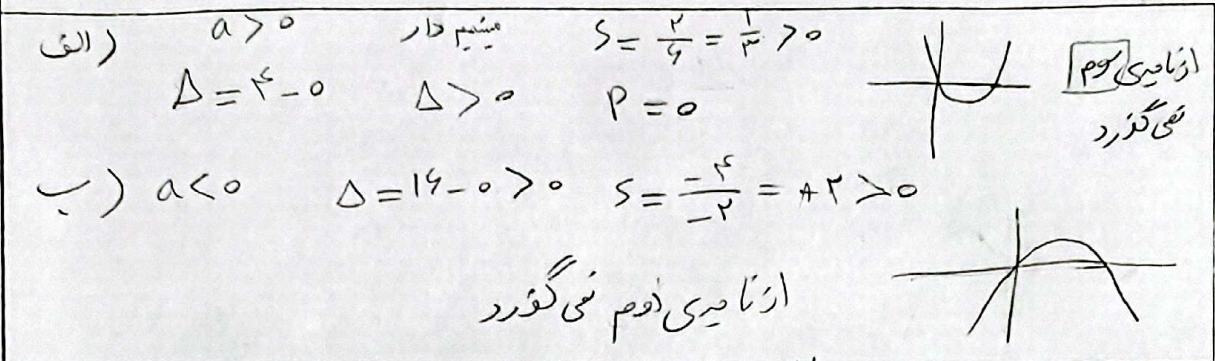 الف) a > ۰ مینیمم دار S = ۲/۶ = ۱/۳ > ۰
Δ = ۴ - ۰ Δ > ۰ P = ۰
از ناحیهٔ سوم
نمی گذرد
ب) a < ۰ Δ = ۱۶ - ۰ > ۰ S = -۴/-۲ = +۲ > ۰
از ناحیهٔ دوم نمی گذرد